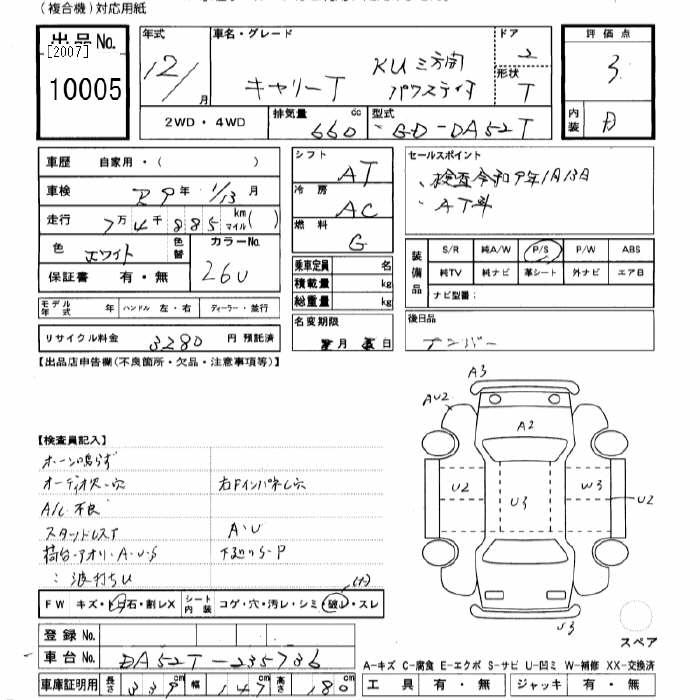 (複合機)対応用紙
出品No. [2007] 10005
年式 12/ 月
車名・グレード キャリーT KU 三方開 パワステ付
ドア 2
形状 T
評価点 3
内装 D
2WD・4WD
排気量 660 cc
型式 GD-DA52T
車歴 自家用・( )
車検 R9年 1/13月
走行 7万4千885 km マイル( )
色 ホワイト 色替 カラーNo. 26U
保証書 有・無
モデル年式 年 ハンドル 左・右 ディーラー・並行
リサイクル料金 3280 円 預託済
シフト AT
冷房 AC
燃料 G
乗車定員 名
積載量 kg
総重量 kg
名変期限 月 日
セールスポイント
、検査令和9年1月13日
、AT車
装備品 S/R 純A/W P/S P/W ABS
純TV 純ナビ 革シート 外ナビ エアB
ナビ型番:
後日品
ナンバー
【出品店申告欄(不良箇所・欠品・注意事項等)】
【検査員記入】
ホーン鳴らず
オーディオ欠・穴 右FインパネL穴
A/C 不良
スタッドレスT A・U
荷台・アオリ・A・U・S 下廻りS・P
: 波打ちU
(大)
FW キズ・ト石・割レX シート内装 コゲ・穴・汚レ・シミ・破レ・スレ
登録No.
車台No. DA52T-235736
車庫証明用 長さ 339cm 幅 147cm 高さ 180cm
A3
AU2
A2
U2
U3
W3
U2
U3
スペア
A-キズ C-腐食 E-エクボ S-サビ U-凹ミ W-補修 XX-交換済
工具 有・無 ジャッキ 有・無